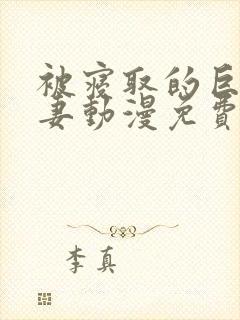 被寢取的巨
妻動漫免費
李真